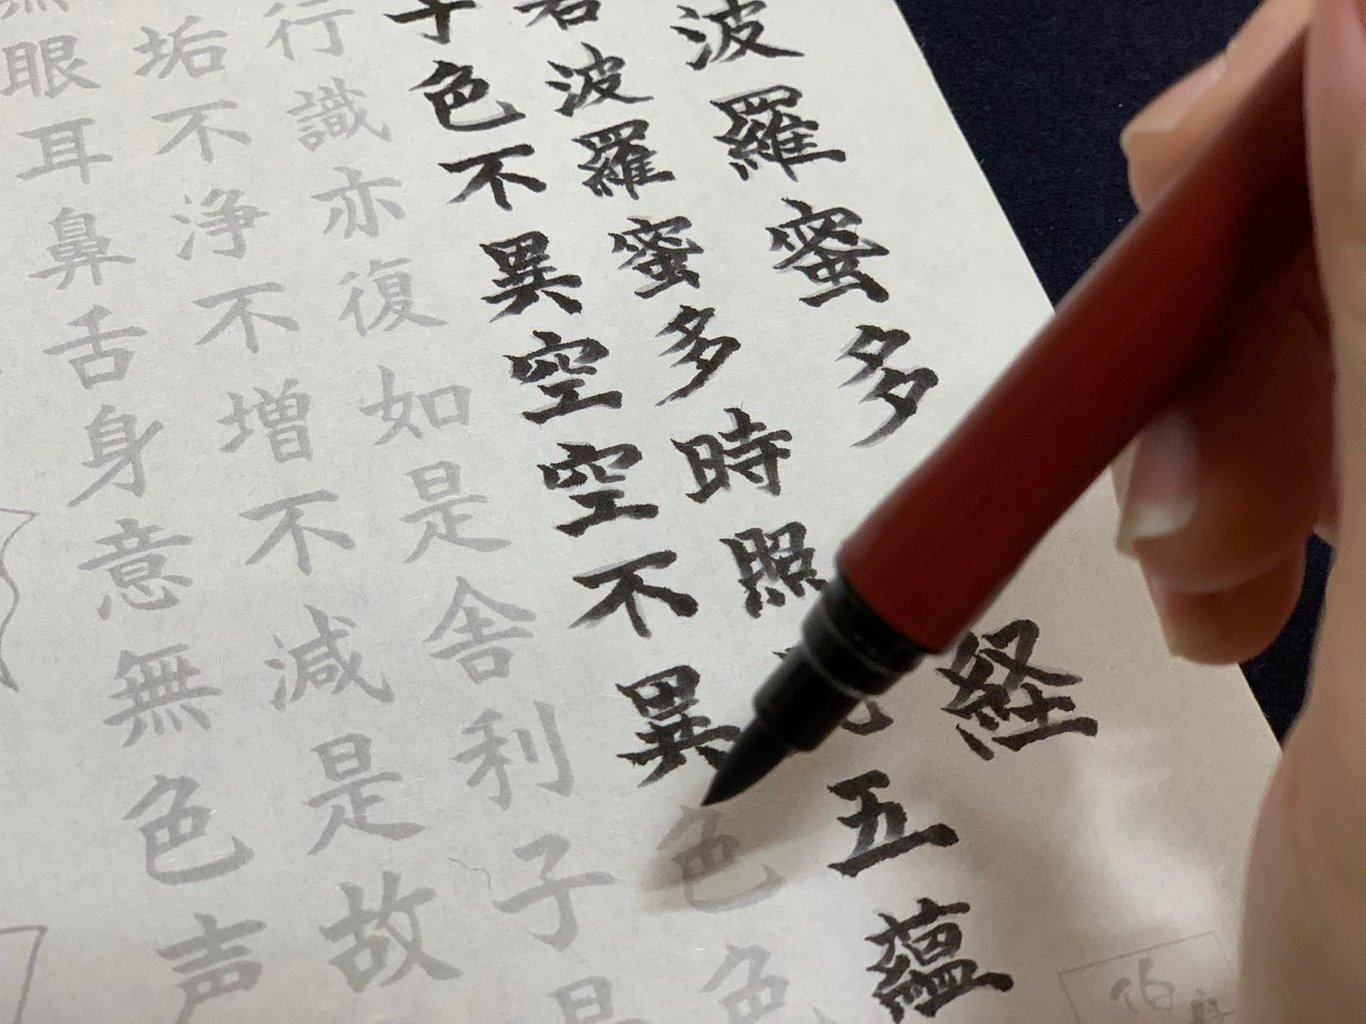 波羅蜜多 経
若波羅蜜多時照 五蘊
子色不異空空不異色色
行識亦復如是舎利子是
垢不浄不増不減是故
無眼耳鼻舌身意無色声